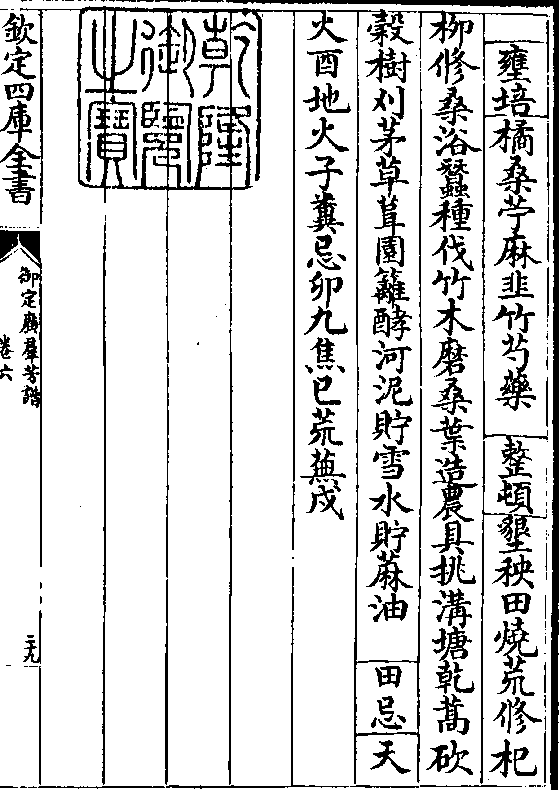 壅培橘桑苧麻韭竹芍藥　整頓墾秧田燒荒修杞
柳修桑浴蠶種伐竹木磨桑葉造農具挑溝塘乾蒿砍
穀樹刈茅草葺園籬酵河泥貯雪水貯蔴油　田忌天
火酉地火子糞忌卯九焦巳荒蕪戌
乾隆御覽之寶
欽定四庫全書
御定廣羣芳譜
卷六
二十九